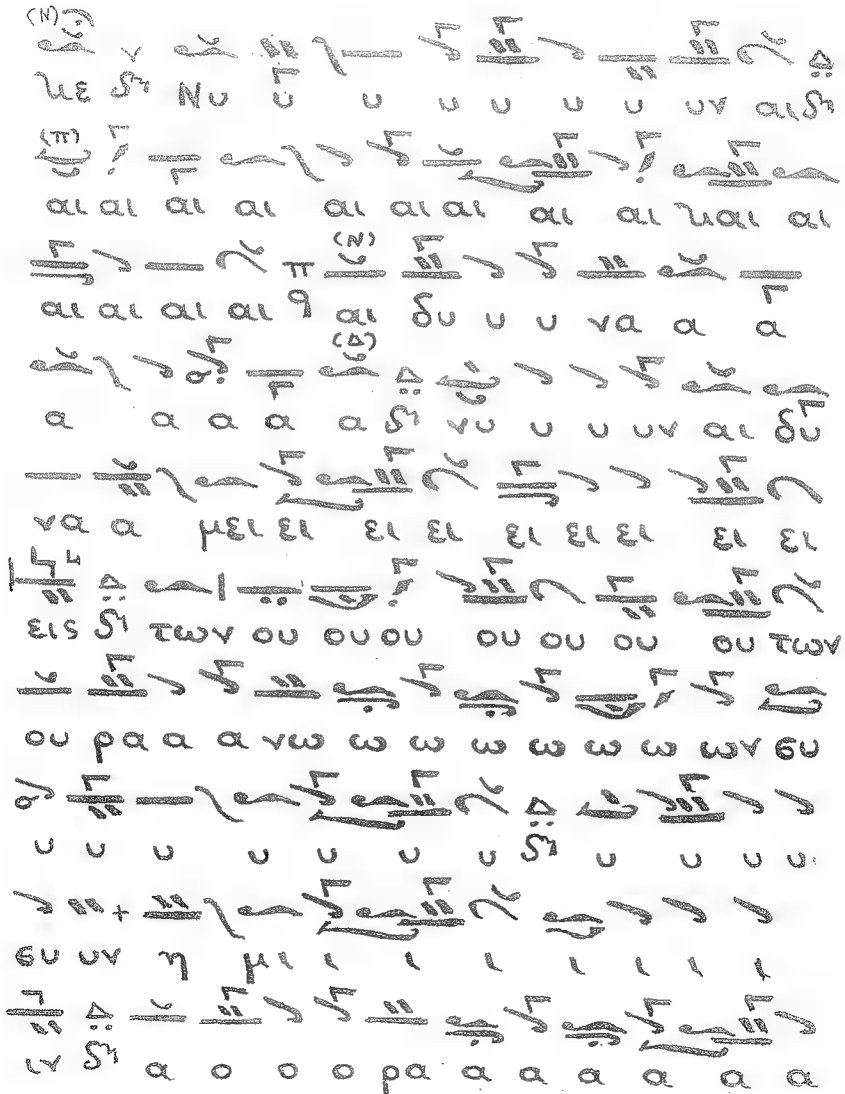 (Ν)
με Νυ υ υ υ υ υ υ υν αι
(π)
αι αι αι αι αι αι αι αι αι και αι
(Ν)
αι αι αι αι π αι δυ υ υ να α α
(Δ)
α α α α α Δ νυ υ υ υν αι δυ
να α μει ει ει ει ει ει ει ει ει
εις Δ των ου ου ου ου ου ου ου των
ου ρα α α νω ω ω ω ω ω ω ων συ
υ υ υ υ υ υ υ Δ υ υ υ υ
συ υν η μι ι ι ι ι ι ι ι
ιν Δ α ο ο ο ρα α α α α α α